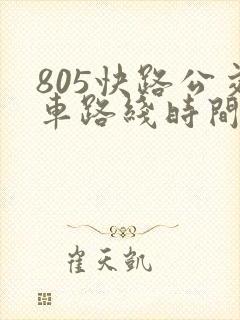 805快路公交
車路綫時間
崔天凱